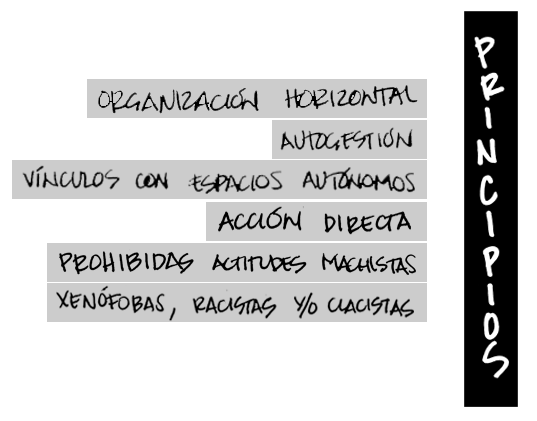 PRINCIPIOS
ORGANIZACIÓN HORIZONTAL
AUTOGESTIÓN
VÍNCULOS CON ESPACIOS AUTÓNOMOS
ACCIÓN DIRECTA
PROHIBIDAS ACTITUDES MACHISTAS
XENÓFOBAS, RACISTAS Y/O CLACISTAS